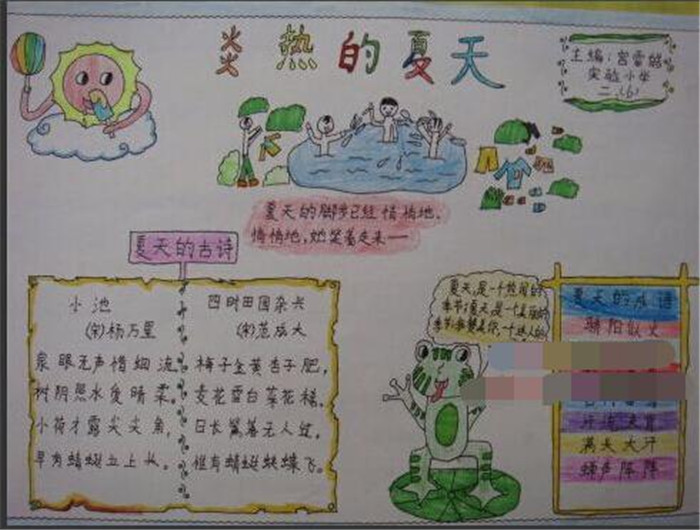 炎热的夏天
主编:宫雷
实验小学
二.(6)
夏天的脚步已经悄悄地、
悄悄地,她笑着走来——
夏天的古诗
小池
(宋)杨万里
泉眼无声惜细流
树阴照水爱晴柔。
小荷才露尖尖角,
早有蜻蜓立上头。
四时田园杂兴
(宋)范成大
梅子金黄杏子肥,
麦花雪白菜花稀。
日长篱落无人过,
惟有蜻蜓蛱蝶飞。
夏天,是一个热闹的
季节;夏天是一个美丽的
季节;
夏天的成语
骄阳似火
汗流夹背
满头大汗
蝉声阵阵